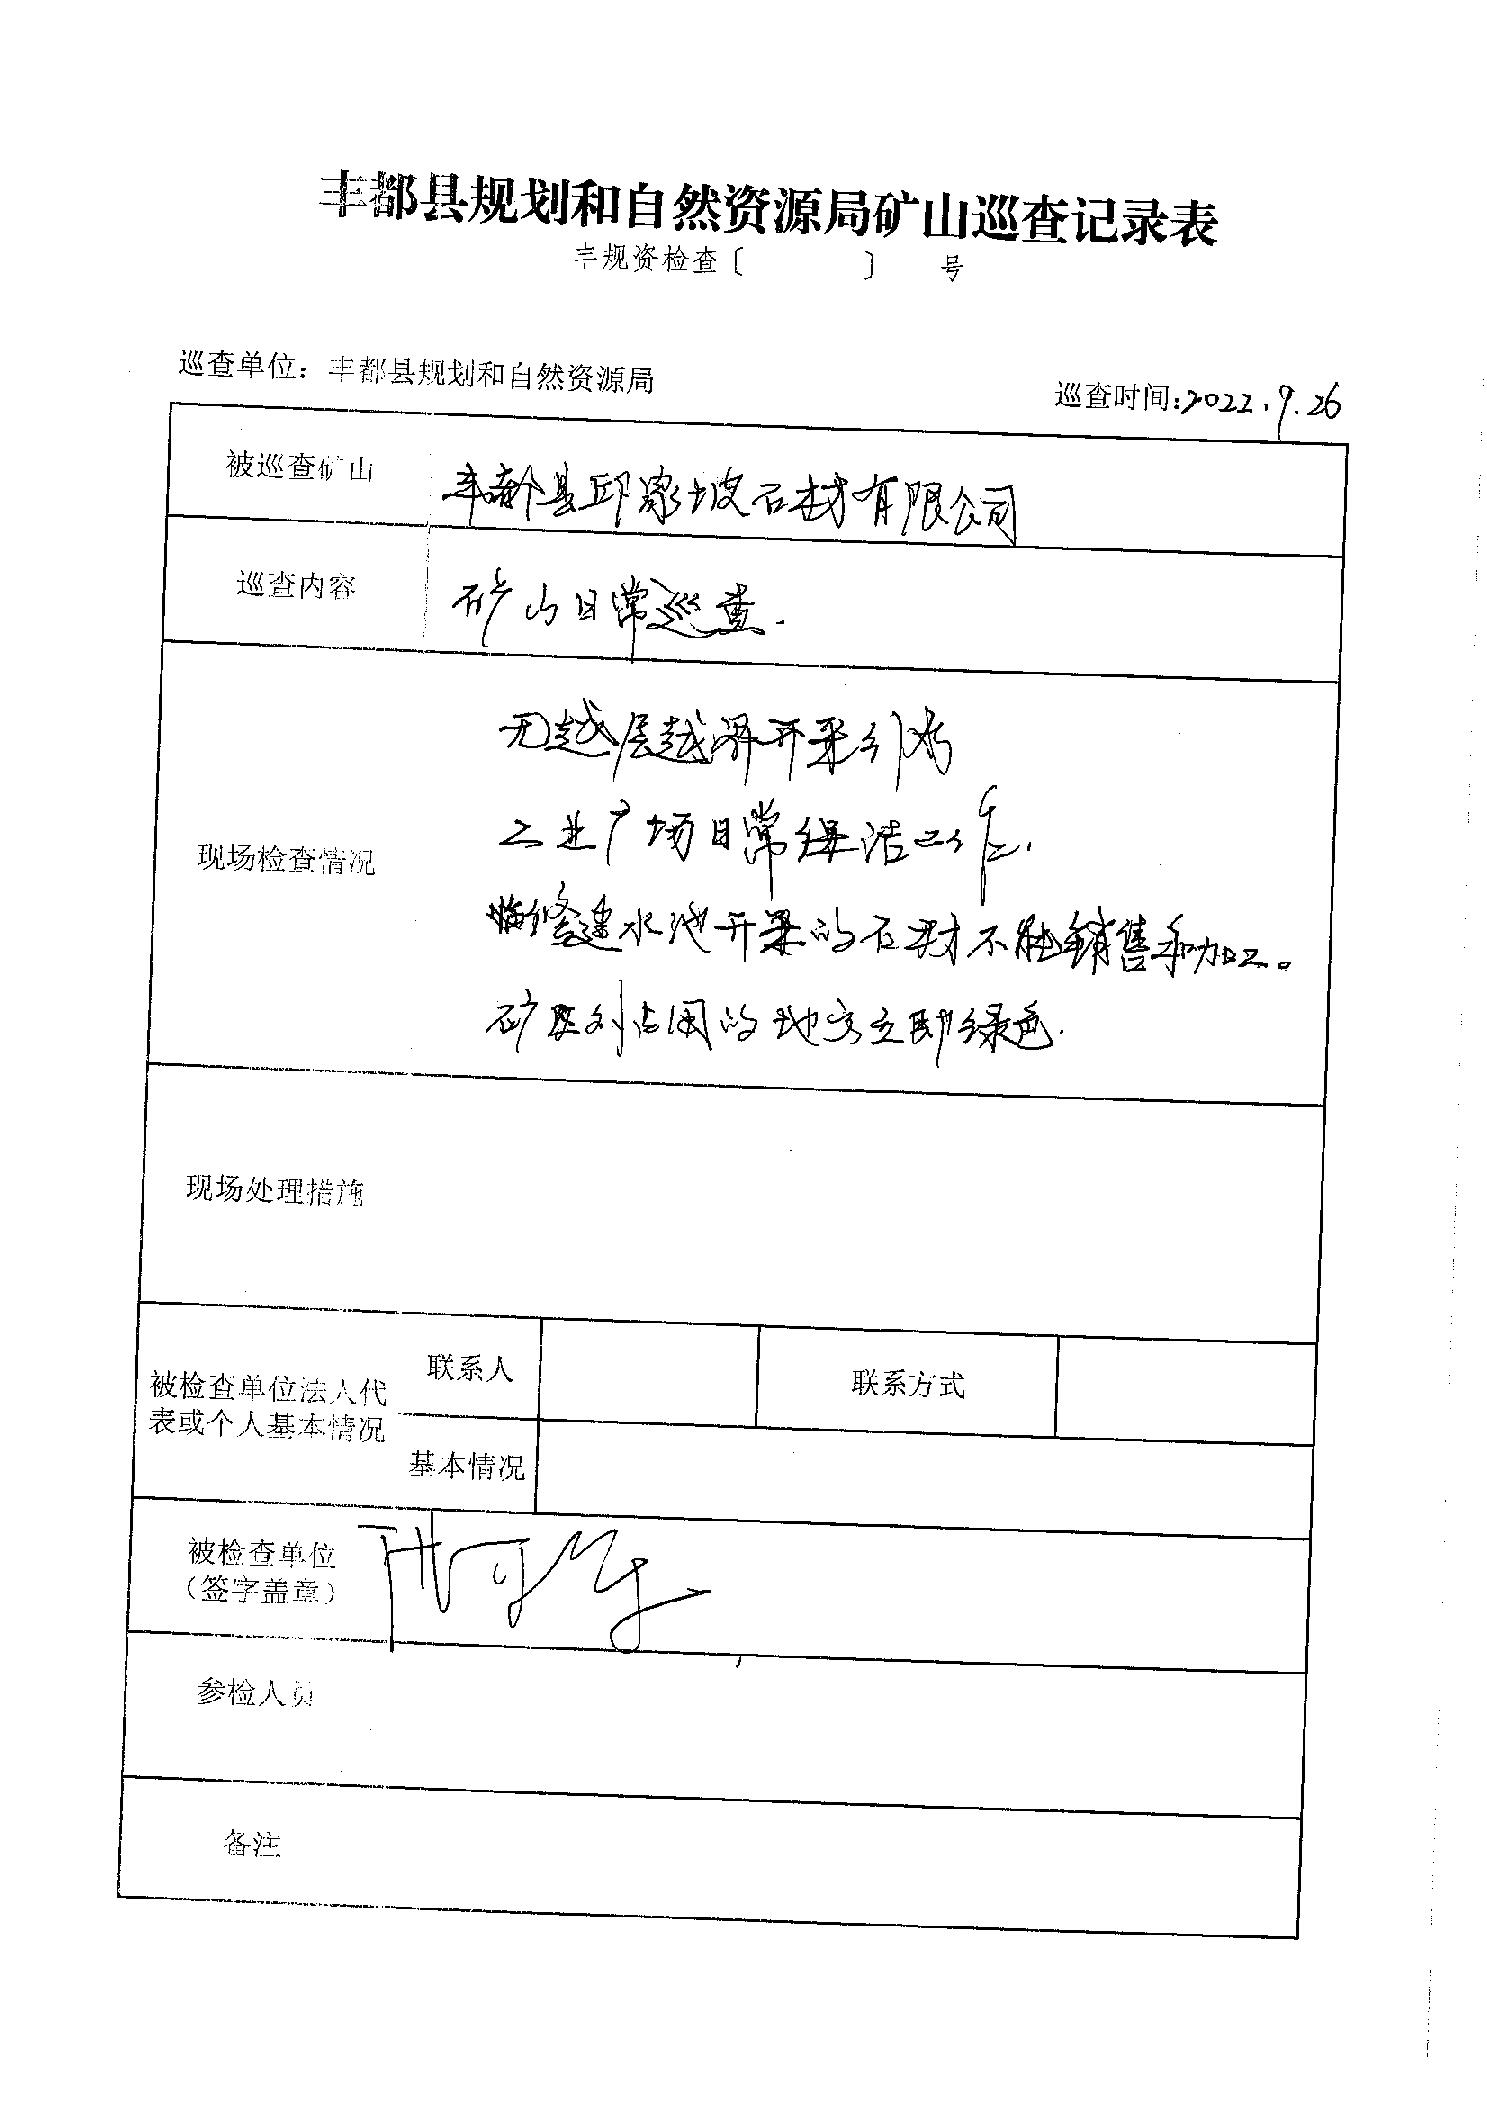 丰都县规划和自然资源局矿山巡查记录表
丰规资检查〔 〕 号
巡查单位：丰都县规划和自然资源局
巡查时间:2022.9.26
被巡查矿山
丰都县邱家坡石材有限公司
巡查内容
矿山日常巡查.
现场检查情况
无越层越界开采行为
工业广场日常保洁工作.
修建水池开采的石材不能销售和加工。
矿区外占用的地方立即绿色.
现场处理措施
被检查单位法人代
表或个人基本情况
联系人
联系方式
基本情况
被检查单位
（签字盖章）
参检人员
备注